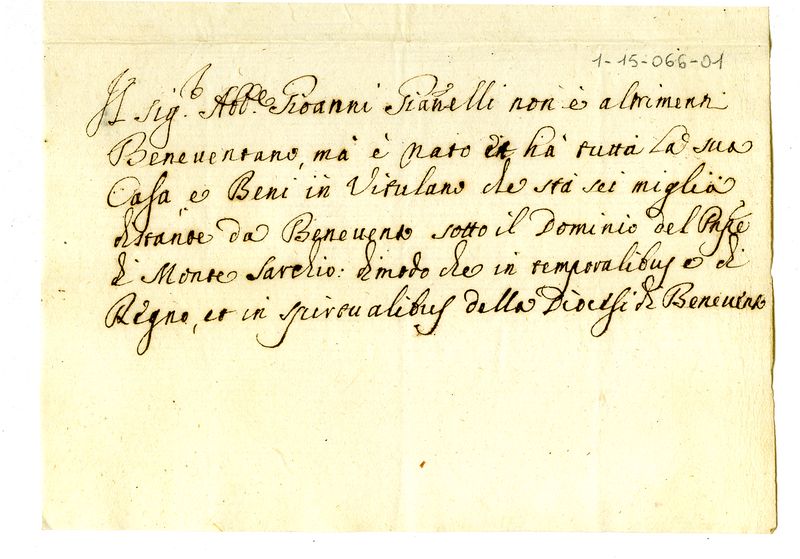 1-15-066-01
Il Sig.r Abb.e Gioanni Gianelli non è altrimenti
Beneventano, mà è nato et hà tutta la sua
Casa e Beni in Vitulano che stà sei miglia
distante da Benevento sotto il Dominio del Pnpe
di Monte Sarchio: dimodo che in temporalibus e di
Regno, et in spiritualibus della Diocesi di Benevento